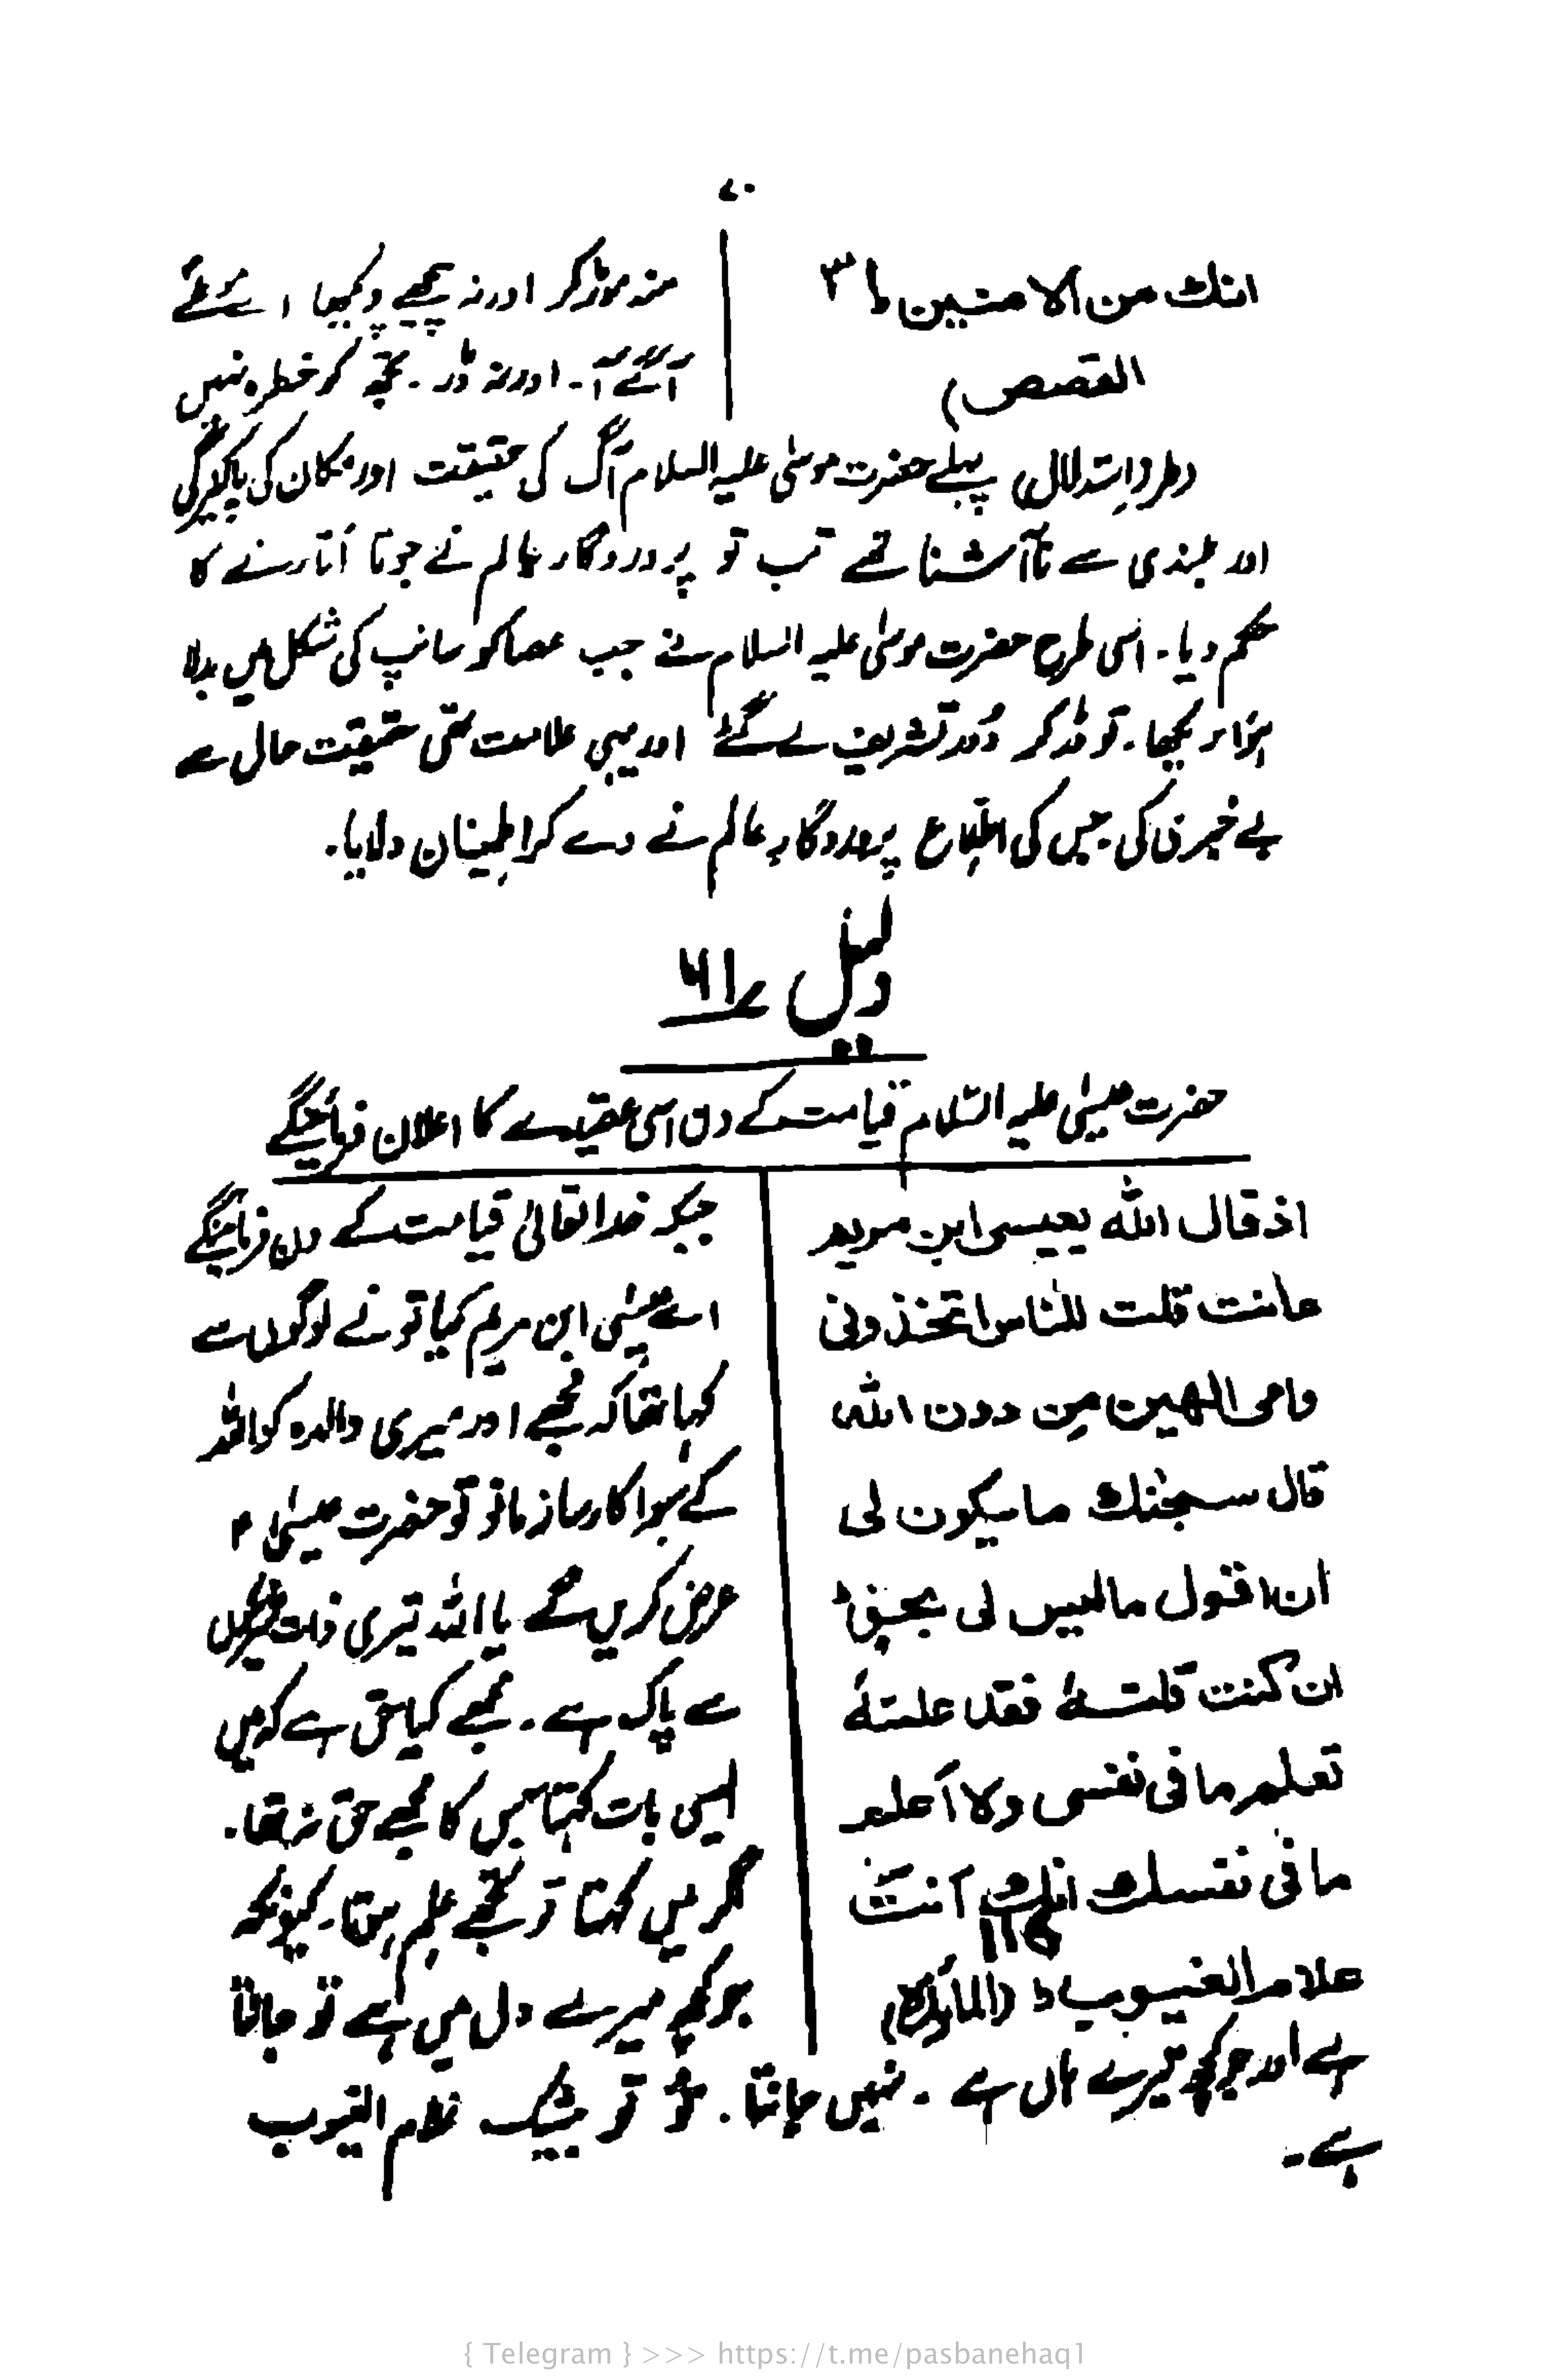 ۷۰
انك من الامنين ۳۱
القصص)
منہ موڑ کر اور نہ پیچھے دیکھا اے
آگے آ۔ اور نہ ڈر۔ تجھے کر خطرہ نہیں
(طرز استدلال) پہلے حضرت موسیٰ علیہ السلام آگ کی حقیقت اور مکان کی پاکیزگی
اور بلندی سے نا آشنا تھے تب تو پروردگار عالم نے جوتا اُتارنے کا
حکم دیا۔ اسی طرح حضرت موسیٰ علیہ السلام نے جب عصا کو سانپ کی شکل میں بدلا
ہوا دیکھا۔ تو ڈر کر دُور تشریف لے گئے اور یہی علامت تھی حقیقت حال سے
بے خبری کی جس کی اطلاع پروردگارِ عالم نے دے کر اطمینان دلایا۔
دلیل ۶۱
حضرت عیسیٰ علیہ السّلام قیامت کے دن اسی عقیدے کا اعلان فرمائینگے
اذ قال اللّٰه يعيسى ابن مريم
ءانت قلت للناس اتخذونى
وامى الهين مِن دون اللّٰه
قال سبحٰنك مايكون لى
ان اقول ماليس لى بحق ؕ
ان كنت قلتهٗ فقد علمتهٗ
تعلم ما فى نفسى ولا اَعلم
ما فى نفسك انك اَنتَ
۱۱۶
علام الغيوب ؕ (المائدة)
جبکہ خدا تعالیٰ قیامت کے دن فرمائینگے
اے عیسیٰ ابن مریم کیا تو نے لوگوں سے
کہا تھا کہ مجھے اور میری والدہ کو اللہ
کے سِوا کارساز مانو تو حضرت عیسیٰ ؑ
عرض کریں گے یا اللّٰہ تیری ذات
سے پاک ہے۔ مجھے کیا حق ہے کہ میں
ایسی بات کہتا جس کا مجھے حق نہ تھا۔
گر میں کہتا تو تجھے علم ہوتا۔ کیونکہ
جو کچھ میرے دل میں ہے تو جانتا
ہے اور جو کچھ تیرے ہاں ہے۔ نہیں جانتا۔ تو بیشک علام الغیوب
ہے۔
{ Telegram } >>> https://t.me/pasbanehaq1